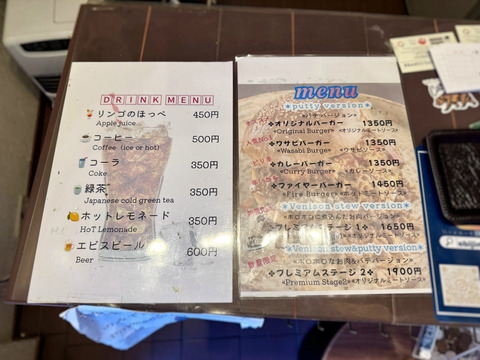 DRINK MENU
リンゴのほっぺ 450円
Apple juice
コーヒー 500円
Coffee (ice or hot)
コーラ 350円
Coke
緑茶 350円
Japanese cold green tea
ホットレモネード 350円
HoT Lemonade
エビスビール 600円
Beer
menu
*putty version*
*パテバージョン*
❖オリジナルバーガー 1350円
«Original Burger» «オリジナルミートソース»
❖ワサビバーガー 1350円
«Wasabi Burger» «ワサビソース»
❖カレーバーガー 1350円
«Curry Burger» «カレーソース»
❖ファイヤーバーガー 1450円
«Fire Burger» «ホットミートソース»
*Venison stew version*
*ホロホロに煮込んだお肉バージョン*
ステージ1❖ 1650円
«オリジナルミートソース»
*Venison stew&putty version*
*ホロホロなお肉&パテバージョン*
❖プレミアムステージ2❖ 1900円
«Premium Stage2» «オリジナルミートソース»